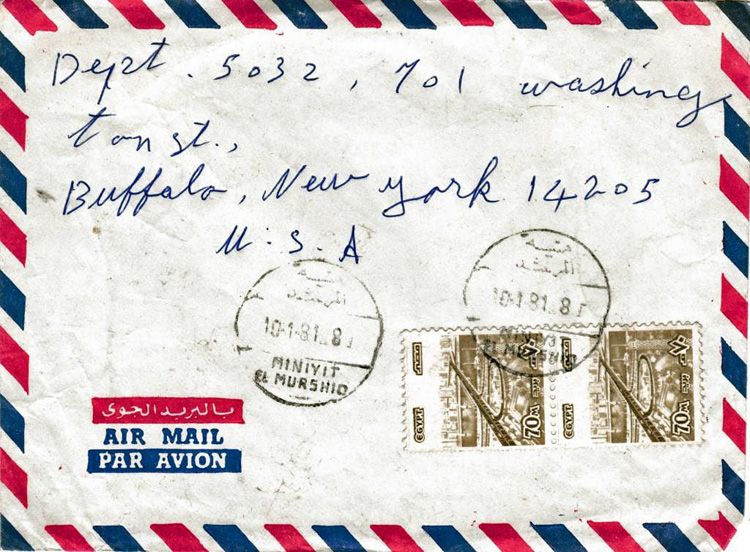 Dept. 5032, 701 washing
ton st.,
Buffalo, New york 14205
U.S.A
منية
المرشد
10-1-81.8
MINIYIT
EL MURSHID
منية
المرشد
10-1-81.8
EL MURSHID
مصر
EGYPT
٧٠ م
بريد
70M
مصر
EGYPT
٧٠ م
بريد
70M
بالبريد الجوى
AIR MAIL
PAR AVION